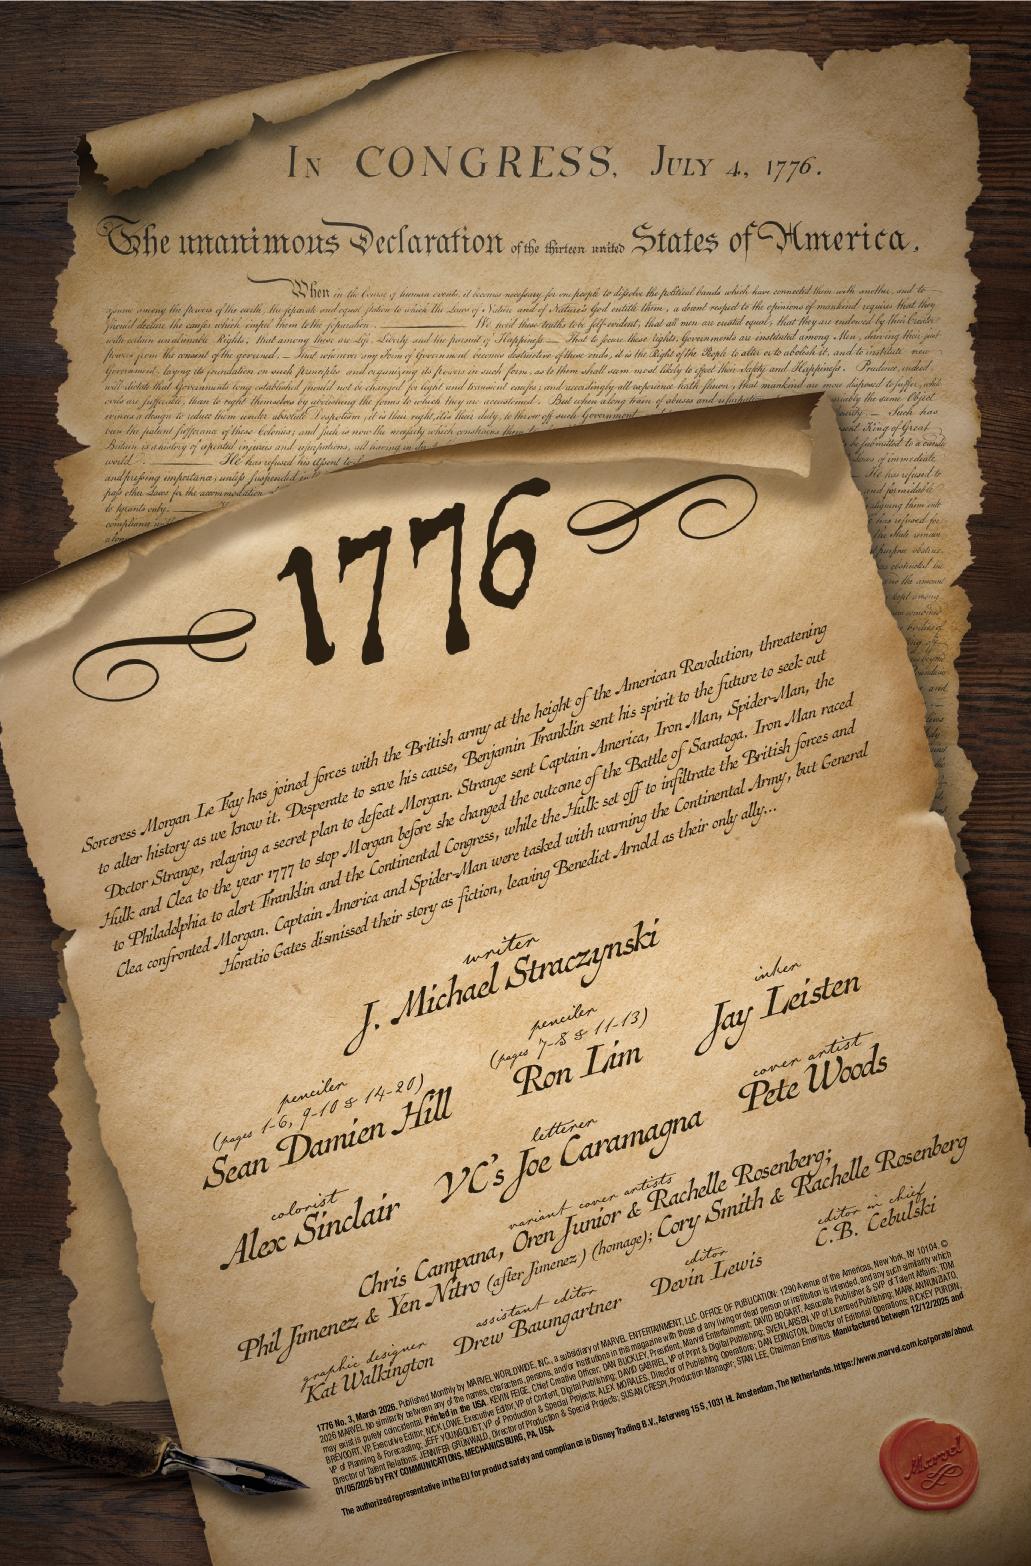 IN CONGRESS, JULY 4, 1776.
The unanimous Declaration of the thirteen united States of America,
When in the Course of human events, it becomes necessary for one people to dissolve the political bands which have connected them with another, and to
among the powers of the earth, the separate and equal station to which the Laws of Nature and of Nature's God entitle them, a decent respect to the opinions of mankind requires that they
should declare the causes which impel them to the separation. We hold these truths to be self-evident, that all men are created equal, that they are endowed by their Creator
with certain unalienable Rights, that among these are Life, Liberty and the pursuit of Happiness — That to secure these rights, Governments are instituted among Men, deriving their just
powers from the consent of the governed, — That whenever any Form of Government becomes destructive of these ends, it is the Right of the People to alter or to abolish it, and to institute new
Government, laying its foundation on such principles and organizing its powers in such form, as to them shall seem most likely to effect their Safety and Happiness. Prudence, indeed,
will dictate that Governments long established should not be changed for light and transient causes; and accordingly all experience hath shewn, that mankind are more disposed to suffer, while
evils are sufferable, than to right themselves by abolishing the forms to which they are accustomed. But when a long train of abuses and usurpations, invariably the same Object
evinces a design to reduce them under absolute Despotism, it is their right, it is their duty, to throw off such Government
been the patient sufferance of these Colonies; and such is now the necessity which constrains them
Britain is a history of repeated injuries and usurpations, all having in
world. He has refused his Assent to
and pressing importance, unless suspended in
pass other Laws for the accommodation
to tyrants only.
1776
Sorceress Morgan Le Fay has joined forces with the British army at the height of the American Revolution, threatening
to alter history as we know it. Desperate to save his cause, Benjamin Franklin sent his spirit to the future to seek out
Doctor Strange, relaying a secret plan to defeat Morgan. Strange sent Captain America, Iron Man, Spider-Man, the
Hulk and Clea to the year 1777 to stop Morgan before she changed the outcome of the Battle of Saratoga. Iron Man raced
to Philadelphia to alert Franklin and the Continental Congress, while the Hulk set off to infiltrate the British forces and
Clea confronted Morgan. Captain America and Spider-Man were tasked with warning the Continental Army, but General
Horatio Gates dismissed their story as fiction, leaving Benedict Arnold as their only ally...
writer
J. Michael Straczynski
penciler
(pages 1-6, 9-10 & 14-20)
Sean Damien Hill
penciler
(pages 7-8 & 11-13)
Ron Lim
inker
Jay Leisten
colorist
Alex Sinclair
letterer
VC's Joe Caramagna
cover artist
Pete Woods
variant cover artists
Chris Campana, Oren Junior & Rachelle Rosenberg;
Phil Jimenez & Yen Nitro (after Jimenez) (homage); Cory Smith & Rachelle Rosenberg
graphic designer
Kat Walkington
assistant editor
Drew Baumgartner
editor
Devin Lewis
editor in chief
C.B. Cebulski
1776 No. 3, March 2026. Published Monthly by MARVEL WORLDWIDE, INC., a subsidiary of MARVEL ENTERTAINMENT, LLC. OFFICE OF PUBLICATION: 1290 Avenue of the Americas, New York, NY 10104. ©
2026 MARVEL. No similarity between any of the names, characters, persons, and/or institutions in this magazine with those of any living or dead person or institution is intended, and any such similarity which
may exist is purely coincidental. Printed in the USA. KEVIN FEIGE, Chief Creative Officer; DAN BUCKLEY, President, Marvel Entertainment; DAVID BOGART, Associate Publisher & SVP of Talent Affairs; TOM
BREVOORT, VP, Executive Editor; NICK LOWE, Executive Editor, VP of Content, Digital Publishing; DAVID GABRIEL, VP of Print & Digital Publishing; SVEN LARSEN, VP of Licensed Publishing; MARK ANNUNZIATO,
VP of Planning & Forecasting; JEFF YOUNGQUIST, VP of Production & Special Projects; ALEX MORALES, Director of Publishing Operations; DAN EDINGTON, Director of Editorial Operations; RICKEY PURDIN,
Director of Talent Relations; JENNIFER GRÜNWALD, Director of Production & Special Projects; SUSAN CRESPI, Production Manager; STAN LEE, Chairman Emeritus. Manufactured between 12/12/2025 and
01/05/2026 by FRY COMMUNICATIONS, MECHANICSBURG, PA, USA.
The authorized representative in the EU for product safety and compliance is Disney Trading B.V., Asterweg 15 S, 1031 HL Amsterdam, The Netherlands, https://www.marvel.com/corporate/about
Marvel